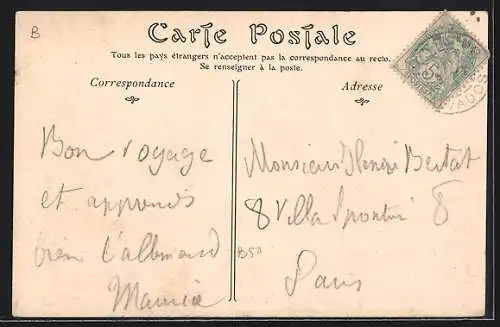 B
Carte Postale
Tous les pays étrangers n'acceptent pas la correspondance au recto.
Se renseigner à la poste.
Correspondance
Adresse
Bon voyage
et apprends
bien l'allemand
Maurice
Monsieur Henri Bertat
8 Villa Spontini 8
Paris
B50